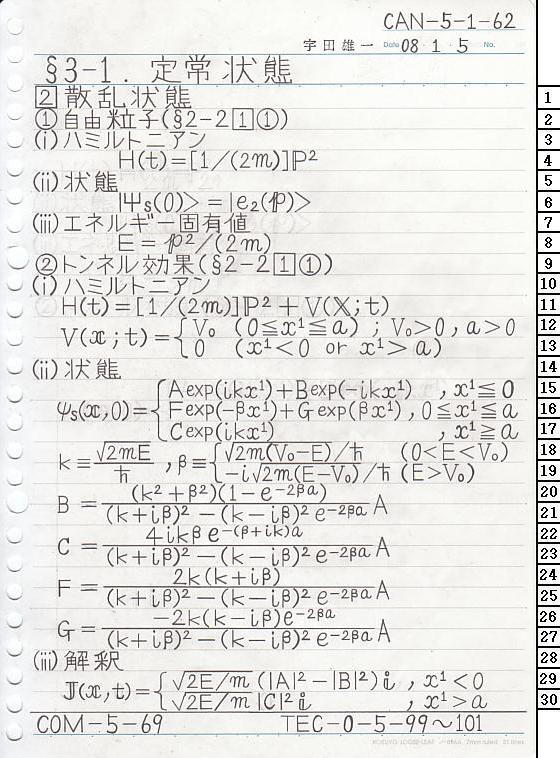 CAN-5-1-62
宇田雄一 Date 08・1・5 No.
§3-1. 定常状態
[2] 散乱状態
① 自由粒子(§2-2[1]①)
(i) ハミルトニアン
H(t)=[1/(2m)]ℙ²
(ii) 状態
|Ψs(0)> = |e₂(𝕡)>
(iii) エネルギー固有値
E = 𝕡²/(2m)
② トンネル効果(§2-2[1]①)
(i) ハミルトニアン
H(t)=[1/(2m)]ℙ² + V(𝕏;t)
V(𝕩;t) = { V₀ (0≦x¹≦a) ; V₀>0, a>0
0 (x¹<0 or x¹>a)
(ii) 状態
ψs(𝕩,0) = { A exp(ikx¹)+B exp(-ikx¹) , x¹≦0
F exp(-βx¹)+G exp(βx¹) , 0≦x¹≦a
C exp(ikx¹) , x¹≧a
k ≡ √2mE/ħ , β ≡ { √2m(V₀-E)/ħ (0<E<V₀)
-i√2m(E-V₀)/ħ (E>V₀)
B = (k²+β²)(1-e^-2βa) / (k+iβ)²-(k-iβ)²e^-2βa A
C = 4ikβe^-(β+ik)a / (k+iβ)²-(k-iβ)²e^-2βa A
F = 2k(k+iβ) / (k+iβ)²-(k-iβ)²e^-2βa A
G = -2k(k-iβ)e^-2βa / (k+iβ)²-(k-iβ)²e^-2βa A
(iii) 解釈
𝕁(𝕩,t) = { √2E/m (|A|²-|B|²)𝕚 , x¹<0
√2E/m |C|²𝕚 , x¹>a
COM-5-69 TEC-0-5-99〜101
1
2
3
4
5
6
7
8
9
10
11
12
13
14
15
16
17
18
19
20
21
22
23
24
25
26
27
28
29
30